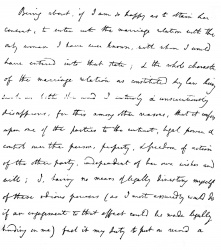 Being about, if I am so happy as to obtain her
consent, to enter into the marriage relation with the
only woman I have ever known, with whom I would
have entered into that state; & the whole character
of the marriage relation as constituted by law being
such as both she and I entirely & conscientiously
disapprove, for this among other reasons, that it confers
upon one of the parties to the contract, legal power &
control over the person, property, & freedom of action
of the other party, independent of her own wishes and
will; I, having no means of legally divesting myself
of these odious powers (as I most assuredly would do
if an engagement to that effect could be made legally
binding on me) feel it my duty to put on record a